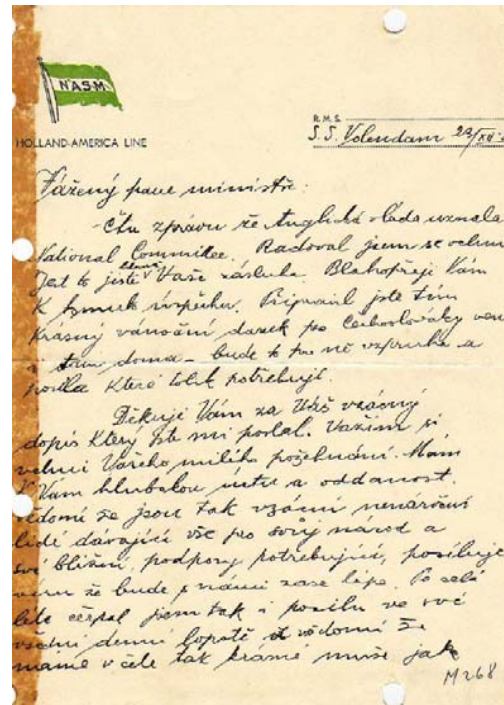 N.A.S.M.
HOLLAND-AMERICA LINE
R.M.S.
S.S. Volendam 23/XII
Vážený pane ministře:
Čtu zprávu že Anglická vláda uznala
National Committee. Radoval jsem se velmi
Jest to jistě Vaše zásluha. Blahopřeji Vám
K tomuto úspěchu. Připravil jste tím
Krásný vánoční dárek pro Čechoslováky ven
a doma – bude to pro ně vzpruha a
posila které tolik potřebují.
Děkuji Vám za Váš vzácný
dopis Který jste mi poslal. Vážím si
velmi Vašeho milého požehnání. Mám
K Vám hlubokou úctu a oddanost.
vědomí že jsou tak vzácní nenároční
lidé dávající vše pro svůj národ a
své bližní, podpory potřebující, posiluje
víru že bude s námi zase lépe. Po celá
léta čerpal jsem tak i posilu ve své
všední denní vědomí že
máme v čele tak krásné muže jak
M268